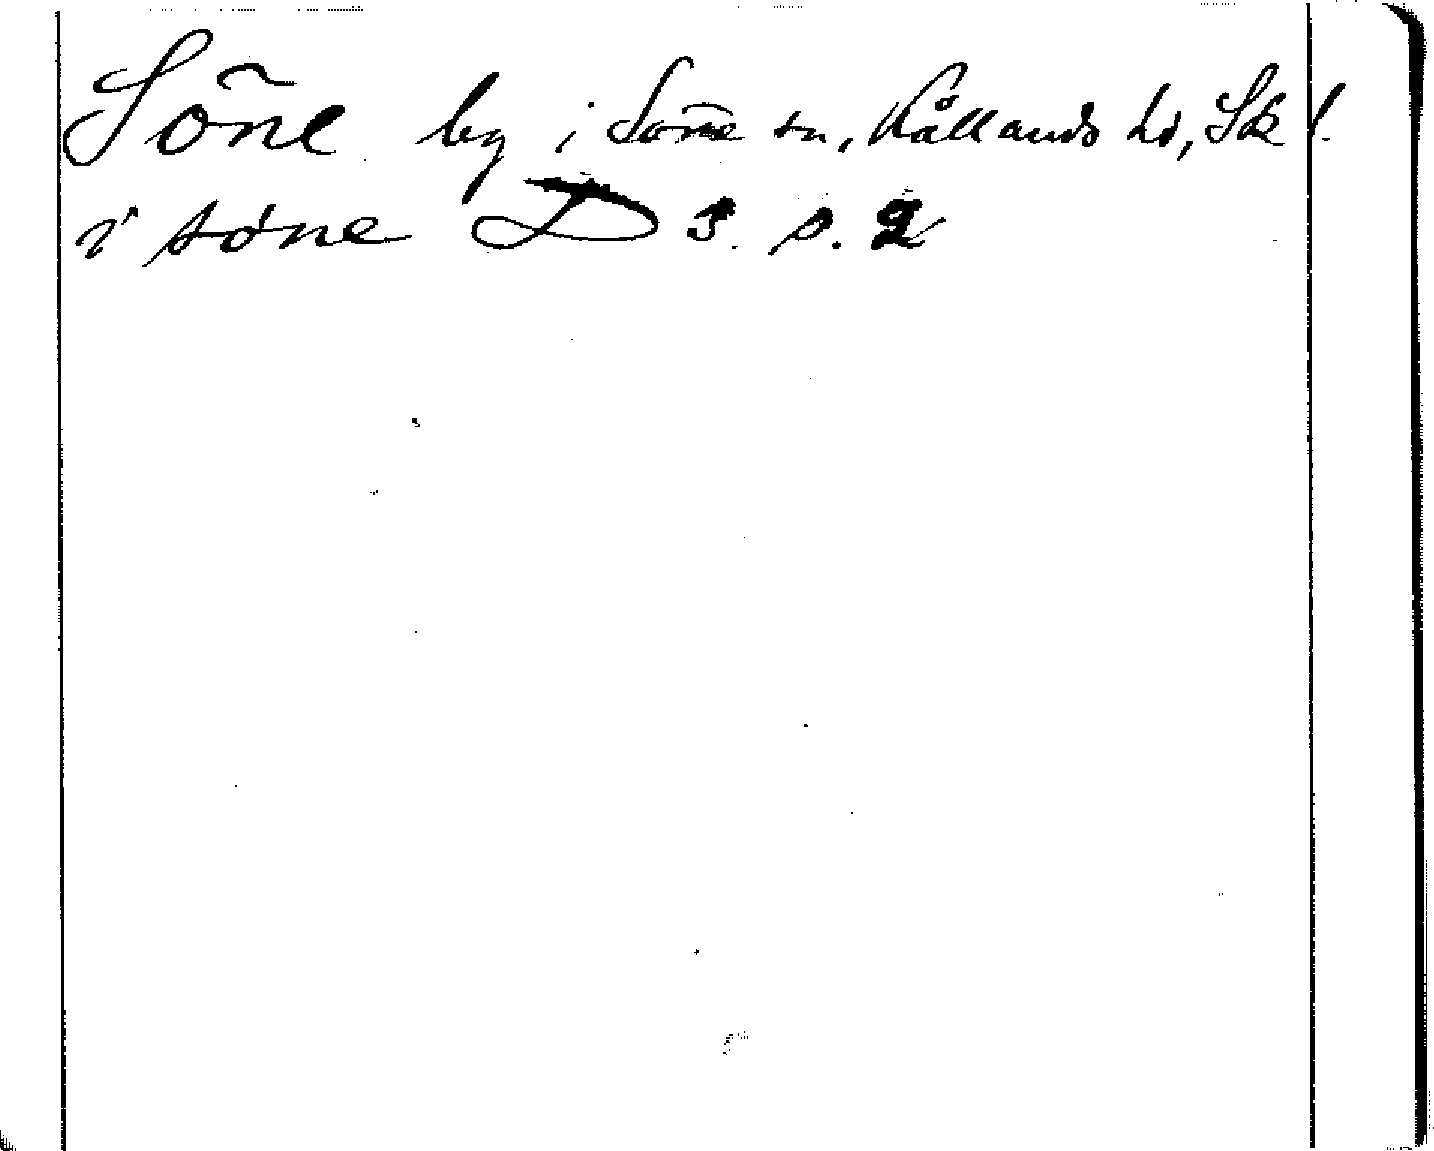 Söne by i Söne sn, Kållands hd, Sk l.
i söne D 3. s. 2